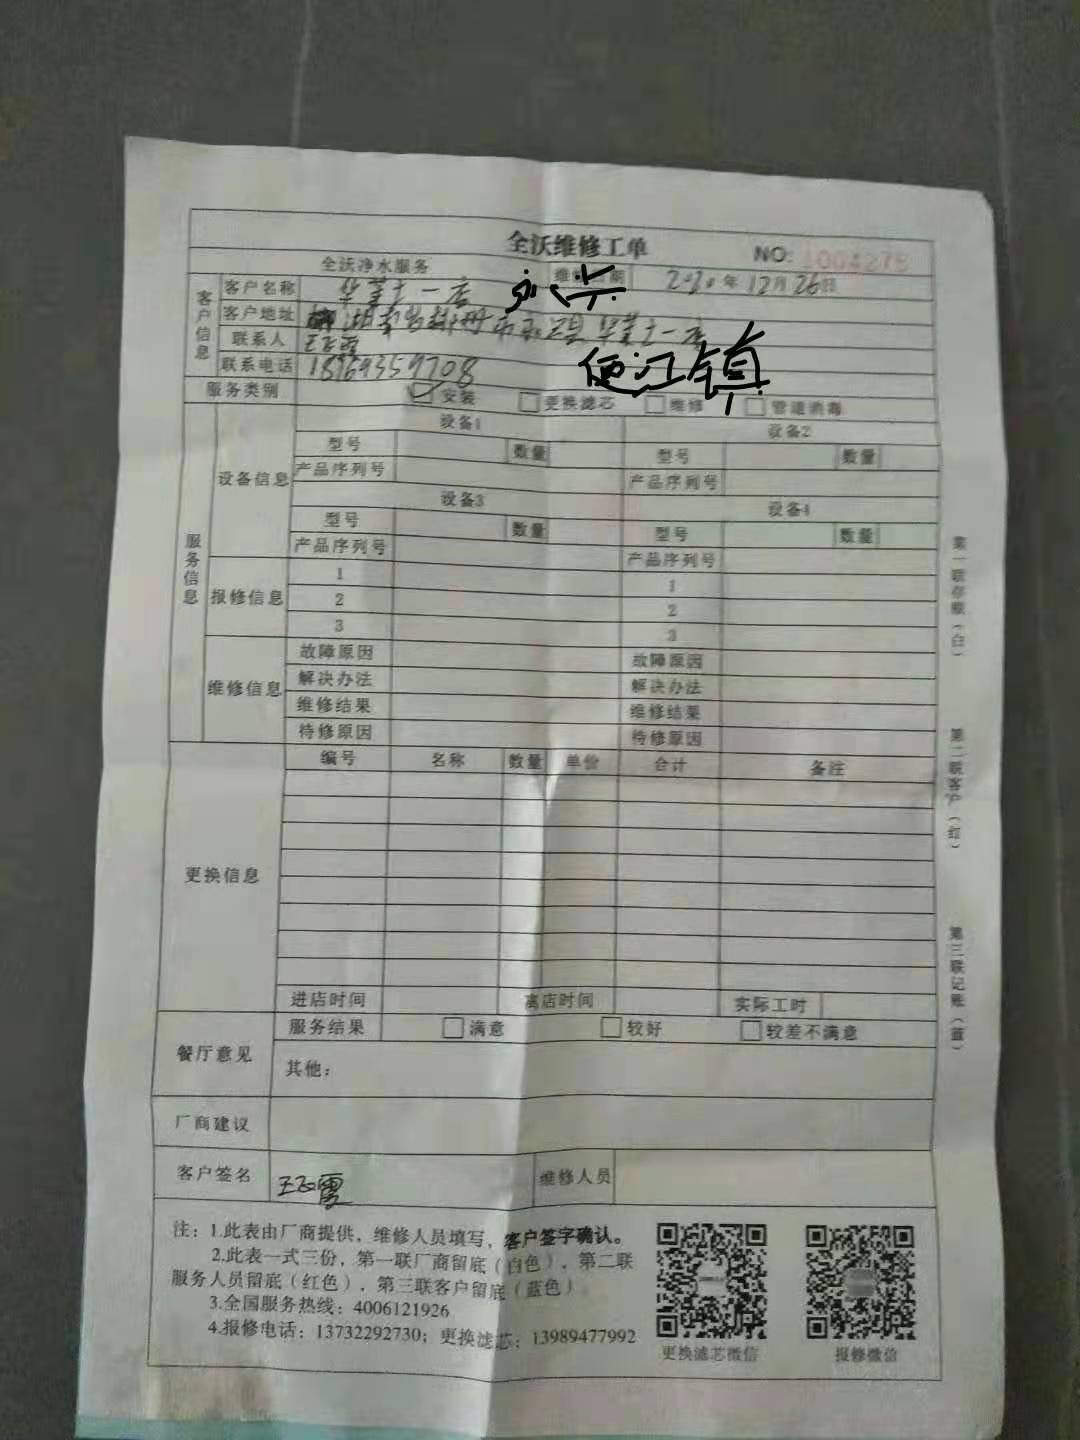 全沃维修工单 NO: 1004275
全沃净水服务 维 期 2020年12月26日
客户信息 客户名称 华莱士一店
客户地址 湖南省郴州市永兴县华莱士一店
永兴
联系人
联系电话 18769359708
便江镇
服务类别 安装 更换滤芯 维修 管道消毒
服务信息 设备信息 设备1 设备2
型号 数量 型号 数量
产品序列号 产品序列号
设备3 设备4
型号 数量 型号 数量
产品序列号 产品序列号
报修信息 1 1
2 2
3 3
维修信息 故障原因 故障原因
解决办法 解决办法
维修结果 维修结果
待修原因 待修原因
更换信息 编号 名称 数量 单价 合计 备注
进店时间 离店时间 实际工时
餐厅意见 服务结果 满意 较好 较差不满意
其他：
厂商建议
客户签名 维修人员
注：1.此表由厂商提供，维修人员填写，客户签字确认。
2.此表一式三份，第一联厂商留底（白色），第二联
服务人员留底（红色），第三联客户留底（蓝色）
3.全国服务热线：4006121926
4.报修电话：13732292730；更换滤芯：13989477992
更换滤芯微信 报修微信
第一联存根（白）
第二联客户（红）
第三联记账（蓝）